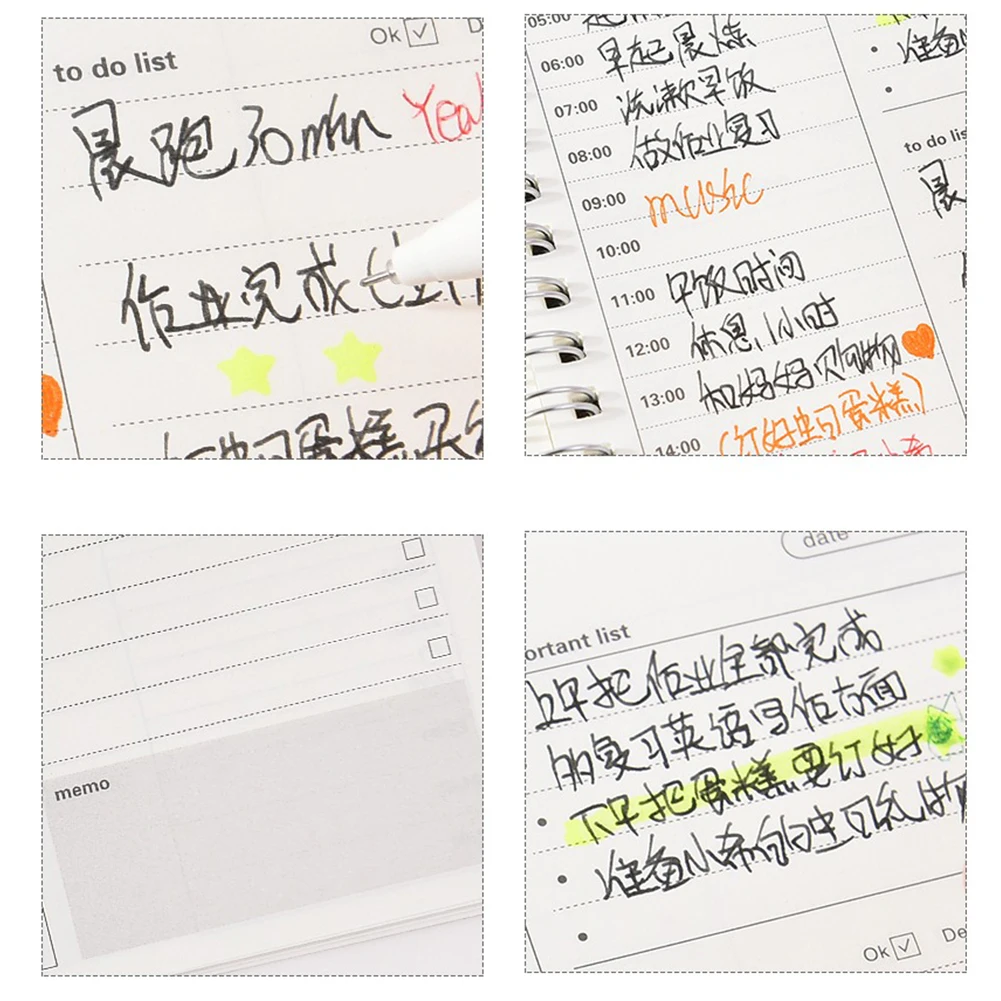 Ok
to do list
晨跑30min Yea
作业完成
05:00
06:00 早起晨炼
07:00 洗漱早饭
08:00 做作业复习
09:00 music
10:00
11:00 早饭时间
12:00 休息1小时
13:00 和妈妈购物
14:00 (订好生日蛋糕)
准备
to do lis
晨
memo
date
ortant list
上午把作业全部完成
的复习英语写作方面
下午把蛋糕要订好
准备小希的生日礼物
Ok
De